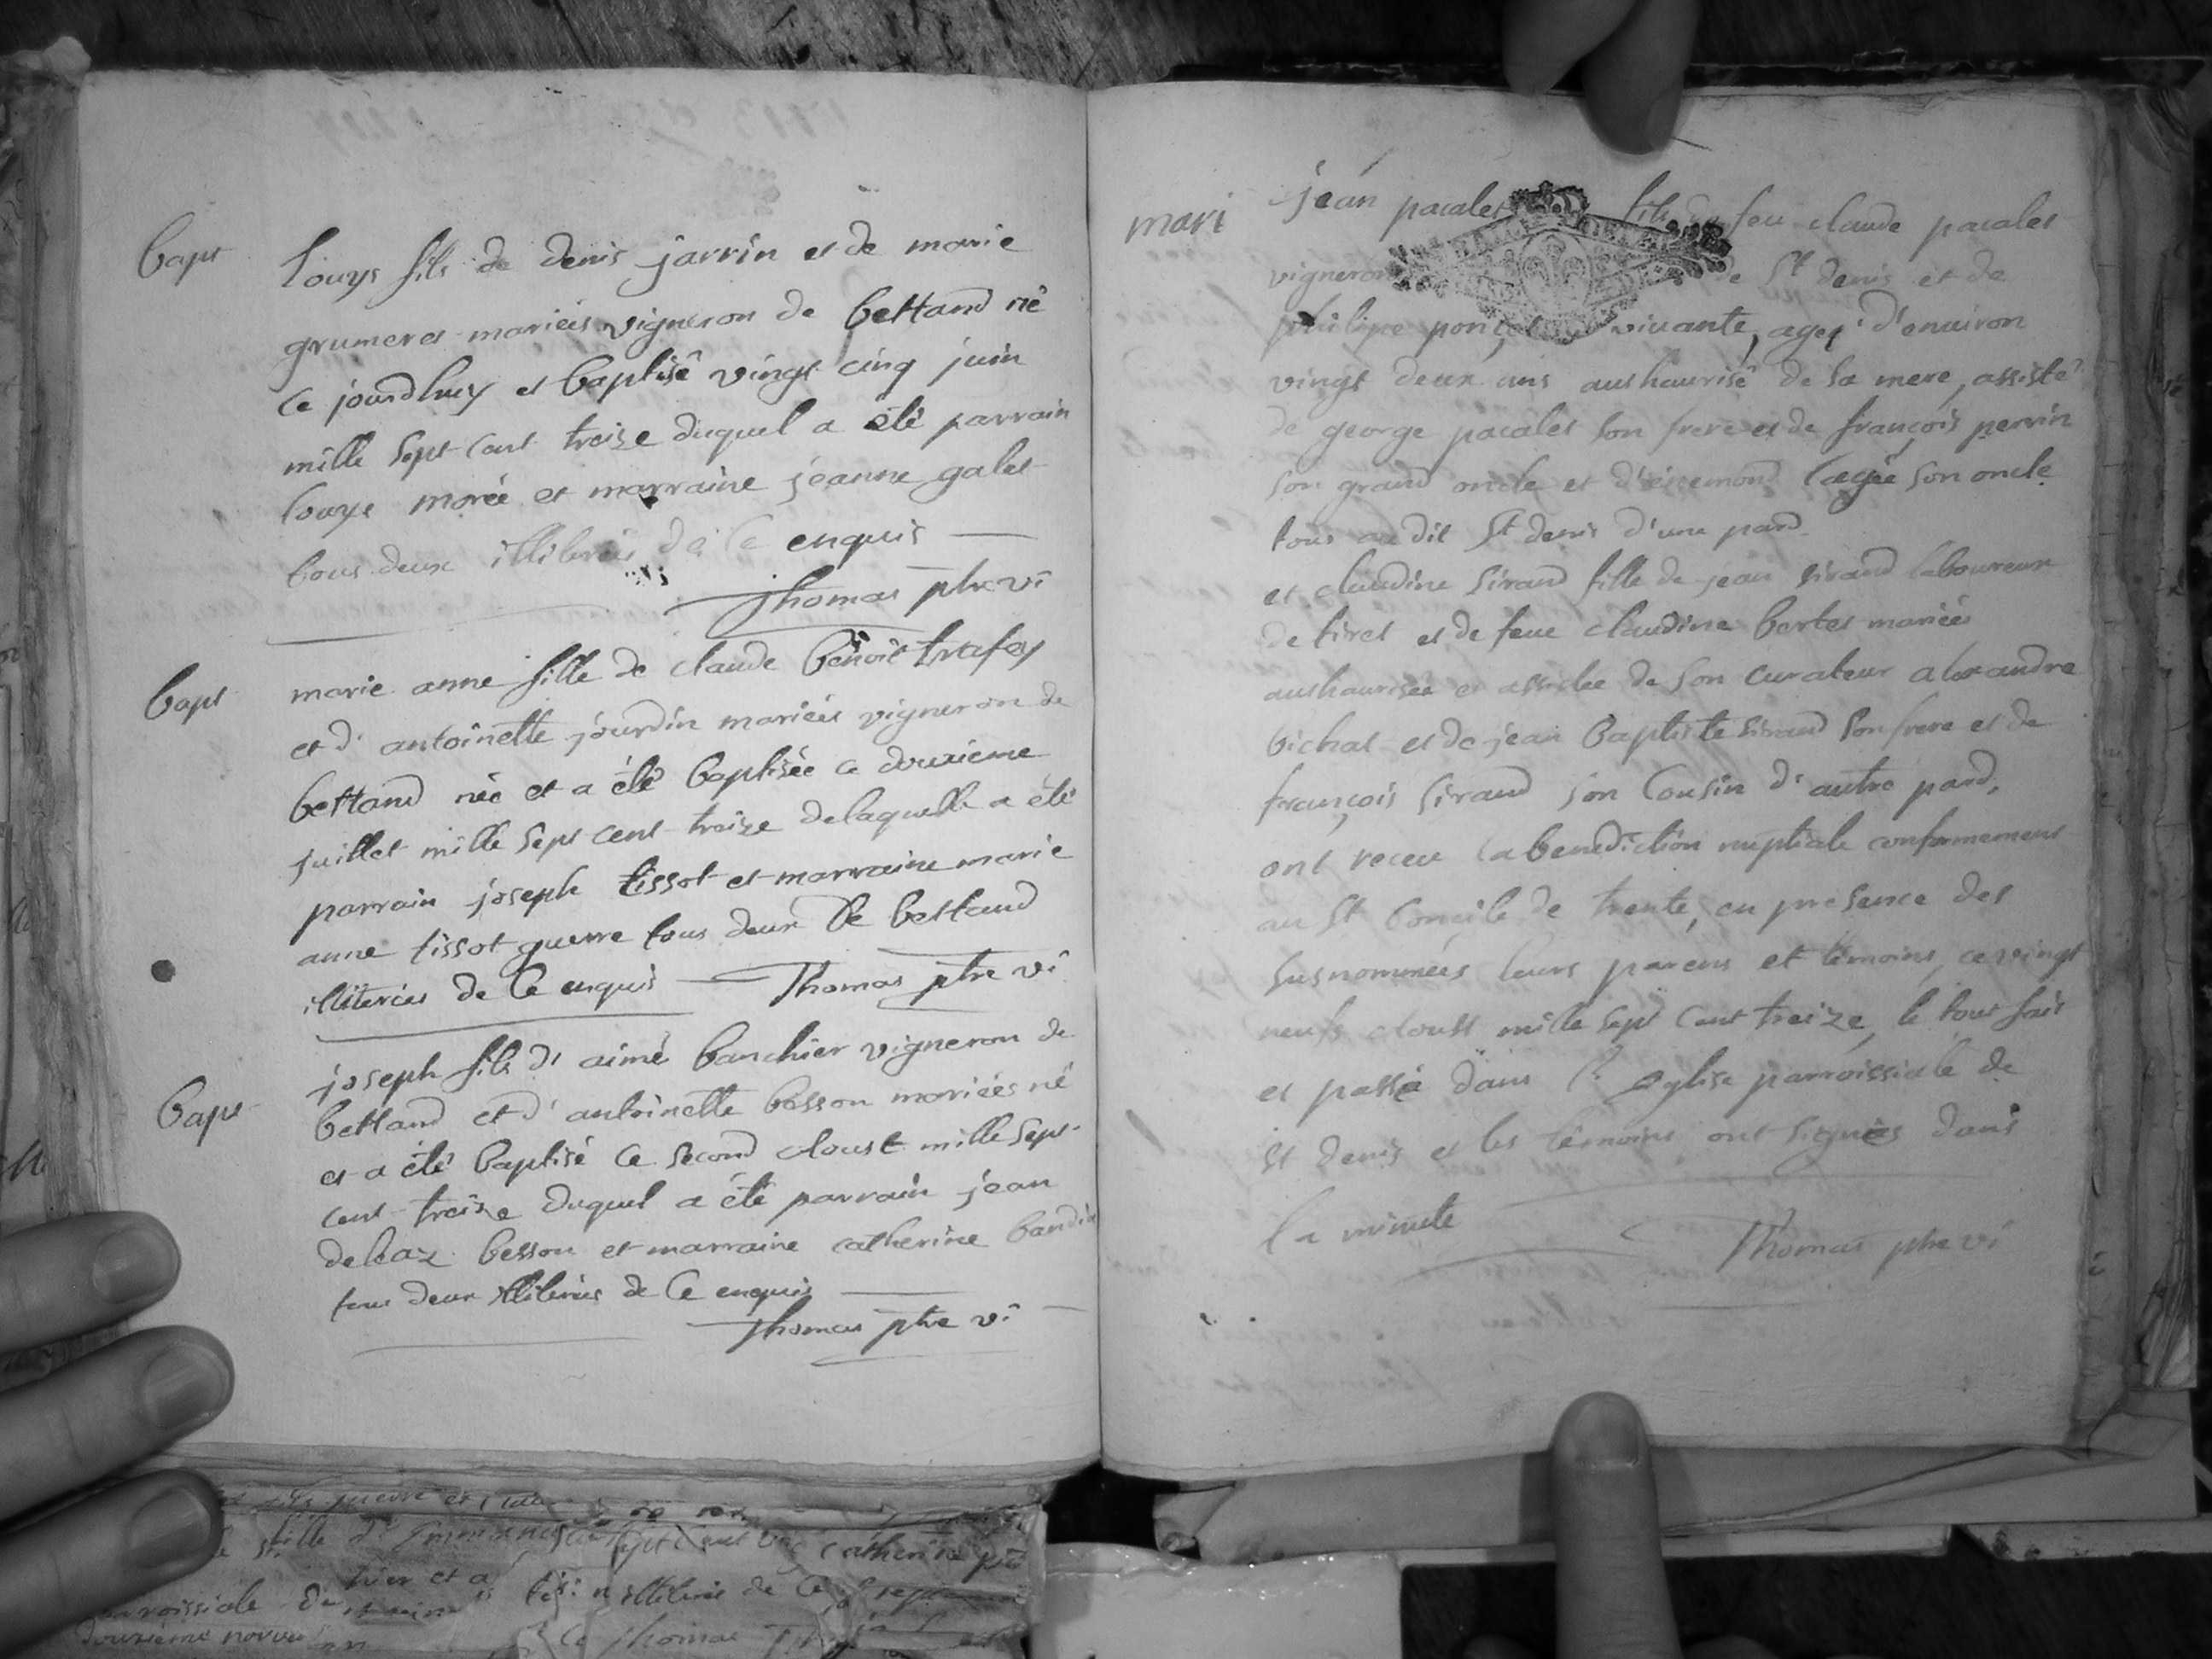 bapt
Louys fils de denis jarrin et de marie
grumeret mariées vigneron de bettand né
ce jourdhuy et baptisé vingt cinq juin
mille sept cent treize duquel a été parrain
louys morée et marraine jeanne galet
tous deux illiterées de ce enquis
Thomas ptre vi
bapt
marie anne fille de claude benoit trafay
et d'antoinette jourdin mariées vigneron de
bettand née et a été baptisée ce douzieme
juillet mille sept cent treize delaquelle a été
parrain joseph tissot et marraine marie
anne tissot guerre tous deux de bettand
illiterées de ce enquis Thomas ptre vi
bapt
joseph fils d'aimé banchier vigneron de
bettand et d'antoinette besson mariées né
et a été baptisé ce second aoust mille sept
cent treize duquel a été parrain jean
besson et marraine catherine
tous deux illiterées de ce enquis
Thomas ptre vi
mari
jean pacalet fils de feu claude pacalet
vigneron de St denis et de
philipe ponçet vivante, agé d'environ
vingt deux ans authaurisé de sa mere, assisté
de george pacalet son frere et de françois perrin
son grand oncle et d'enemond son oncle
tous au dit St denis d'une pard
et claudine sirand fille de jean sirand laboureur
de tiret et de feue claudine bertet mariées
authaurisée et assistée de son curateur alexandre
bichat et de jean baptiste sirand son frere et de
françois sirand son cousin d'autre pard,
ont receu la benediction nuptiale conformement
au St Concile de trente, en presence des
susnommées leurs parens et témoins, ce vingt
neufs aoust mille sept cent treize, le tout fait
et passé dans l'eglise parroissiale de
St denis et les témoins ont signées dans
la minute
Thomas ptre vi